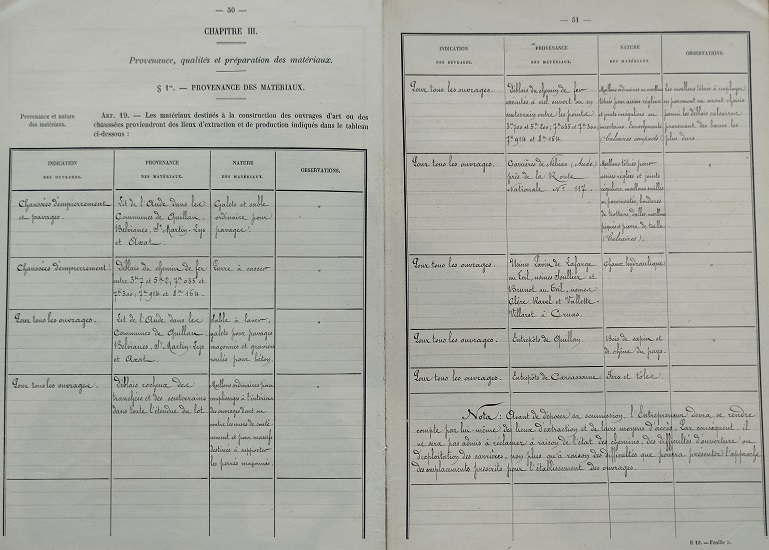 — 30 —
CHAPITRE III.
Provenance, qualités et préparation des matériaux.
§ 1er. — PROVENANCE DES MATÉRIAUX.
Provenance et nature
des matériaux.
ART. 19. — Les matériaux destinés à la construction des ouvrages d'art ou des
chaussées proviendront des lieux d'extraction et de production indiqués dans le tableau
ci-dessous :
INDICATION
DES OUVRAGES.
PROVENANCE
DES MATÉRIAUX.
NATURE
DES MATÉRIAUX.
OBSERVATIONS.
Chaussées d'empierrement
et pavages.
Lit de l'Aude dans les
Communes de Quillan,
Belvianes, St Martin-Lys
et Axat.
Galets et sable
ordinaire pour
pavages.
"
Chaussées d'empierrement.
Déblais du chemin de fer
entre
7k 300; 7k 914 et 8k 164.
Pierre à casser
"
Pour tous les ouvrages.
Lit de l'Aude dans les
Communes de Quillan,
Belvianes, St Martin-Lys
et Axat.
Sable à laver,
galets pour pavages
maçonnés et graviers
roulés pour béton.
"
Pour tous les ouvrages
Déblais rocheux des
tranchées et des souterrains
dans toute l'étendue du lot.
Moellons ordinaires pour
remplissages à l'intérieur
des ouvrages d'art ou
et pour massifs
destinés à supporter
les perrés maçonnés.
"
— 31 —
INDICATION
DES OUVRAGES.
PROVENANCE
DES MATÉRIAUX.
NATURE
DES MATÉRIAUX.
OBSERVATIONS.
Pour tous les ouvrages.
Déblais du chemin de fer
exécutés à ciel ouvert ou en
souterrains entre les points
5k 200; 7k 035 et 7k 300
7k 914 et 8k 164.
Moellons ordinaires ou moellons
têtués pour assises réglées
et joints incertains ou
incertains. Enrochements
(Calcaires compacts)
Les moellons têtués à employer
en parement ou seront choisis
parmi les déblais calcaires
provenant des bancs les
plus durs.
Pour tous les ouvrages.
Carrières de Nébias (Aude)
près de la Route
Nationale No 117.
Moellons têtués pour
assises réglées et joints
réguliers, moellons smillés
ou parementés, bordures
de trottoirs, dalles, moellons
piqués et pierre de taille
(Calcaires).
"
Pour tous les ouvrages.
Usines Pavin de Lafarge
au Teil, usines Soullier et
Brunot au Teil, usines
Clère Ravel et Valette-
Villaret à Cruas.
Chaux hydraulique
"
Pour tous les ouvrages.
Entrepôts de Quillan.
Bois de sapin et
de chêne du pays.
"
Pour tous les ouvrages.
Entrepôts de Carcassonne
Fers et tôles.
"
Nota : Avant de déposer sa soumission, l'Entrepreneur devra se rendre
compte par lui-même des lieux d'extraction et de leurs moyens d'accès. Par conséquent, il
ne sera pas admis à réclamer à raison de l'état des chemins, des difficultés d'ouverture ou
d'exploitation des carrières, non plus qu'à raison des difficultés que pourra présenter l'approche
des emplacements prescrits pour l'établissement des ouvrages.
E 10. — Feuille 5.